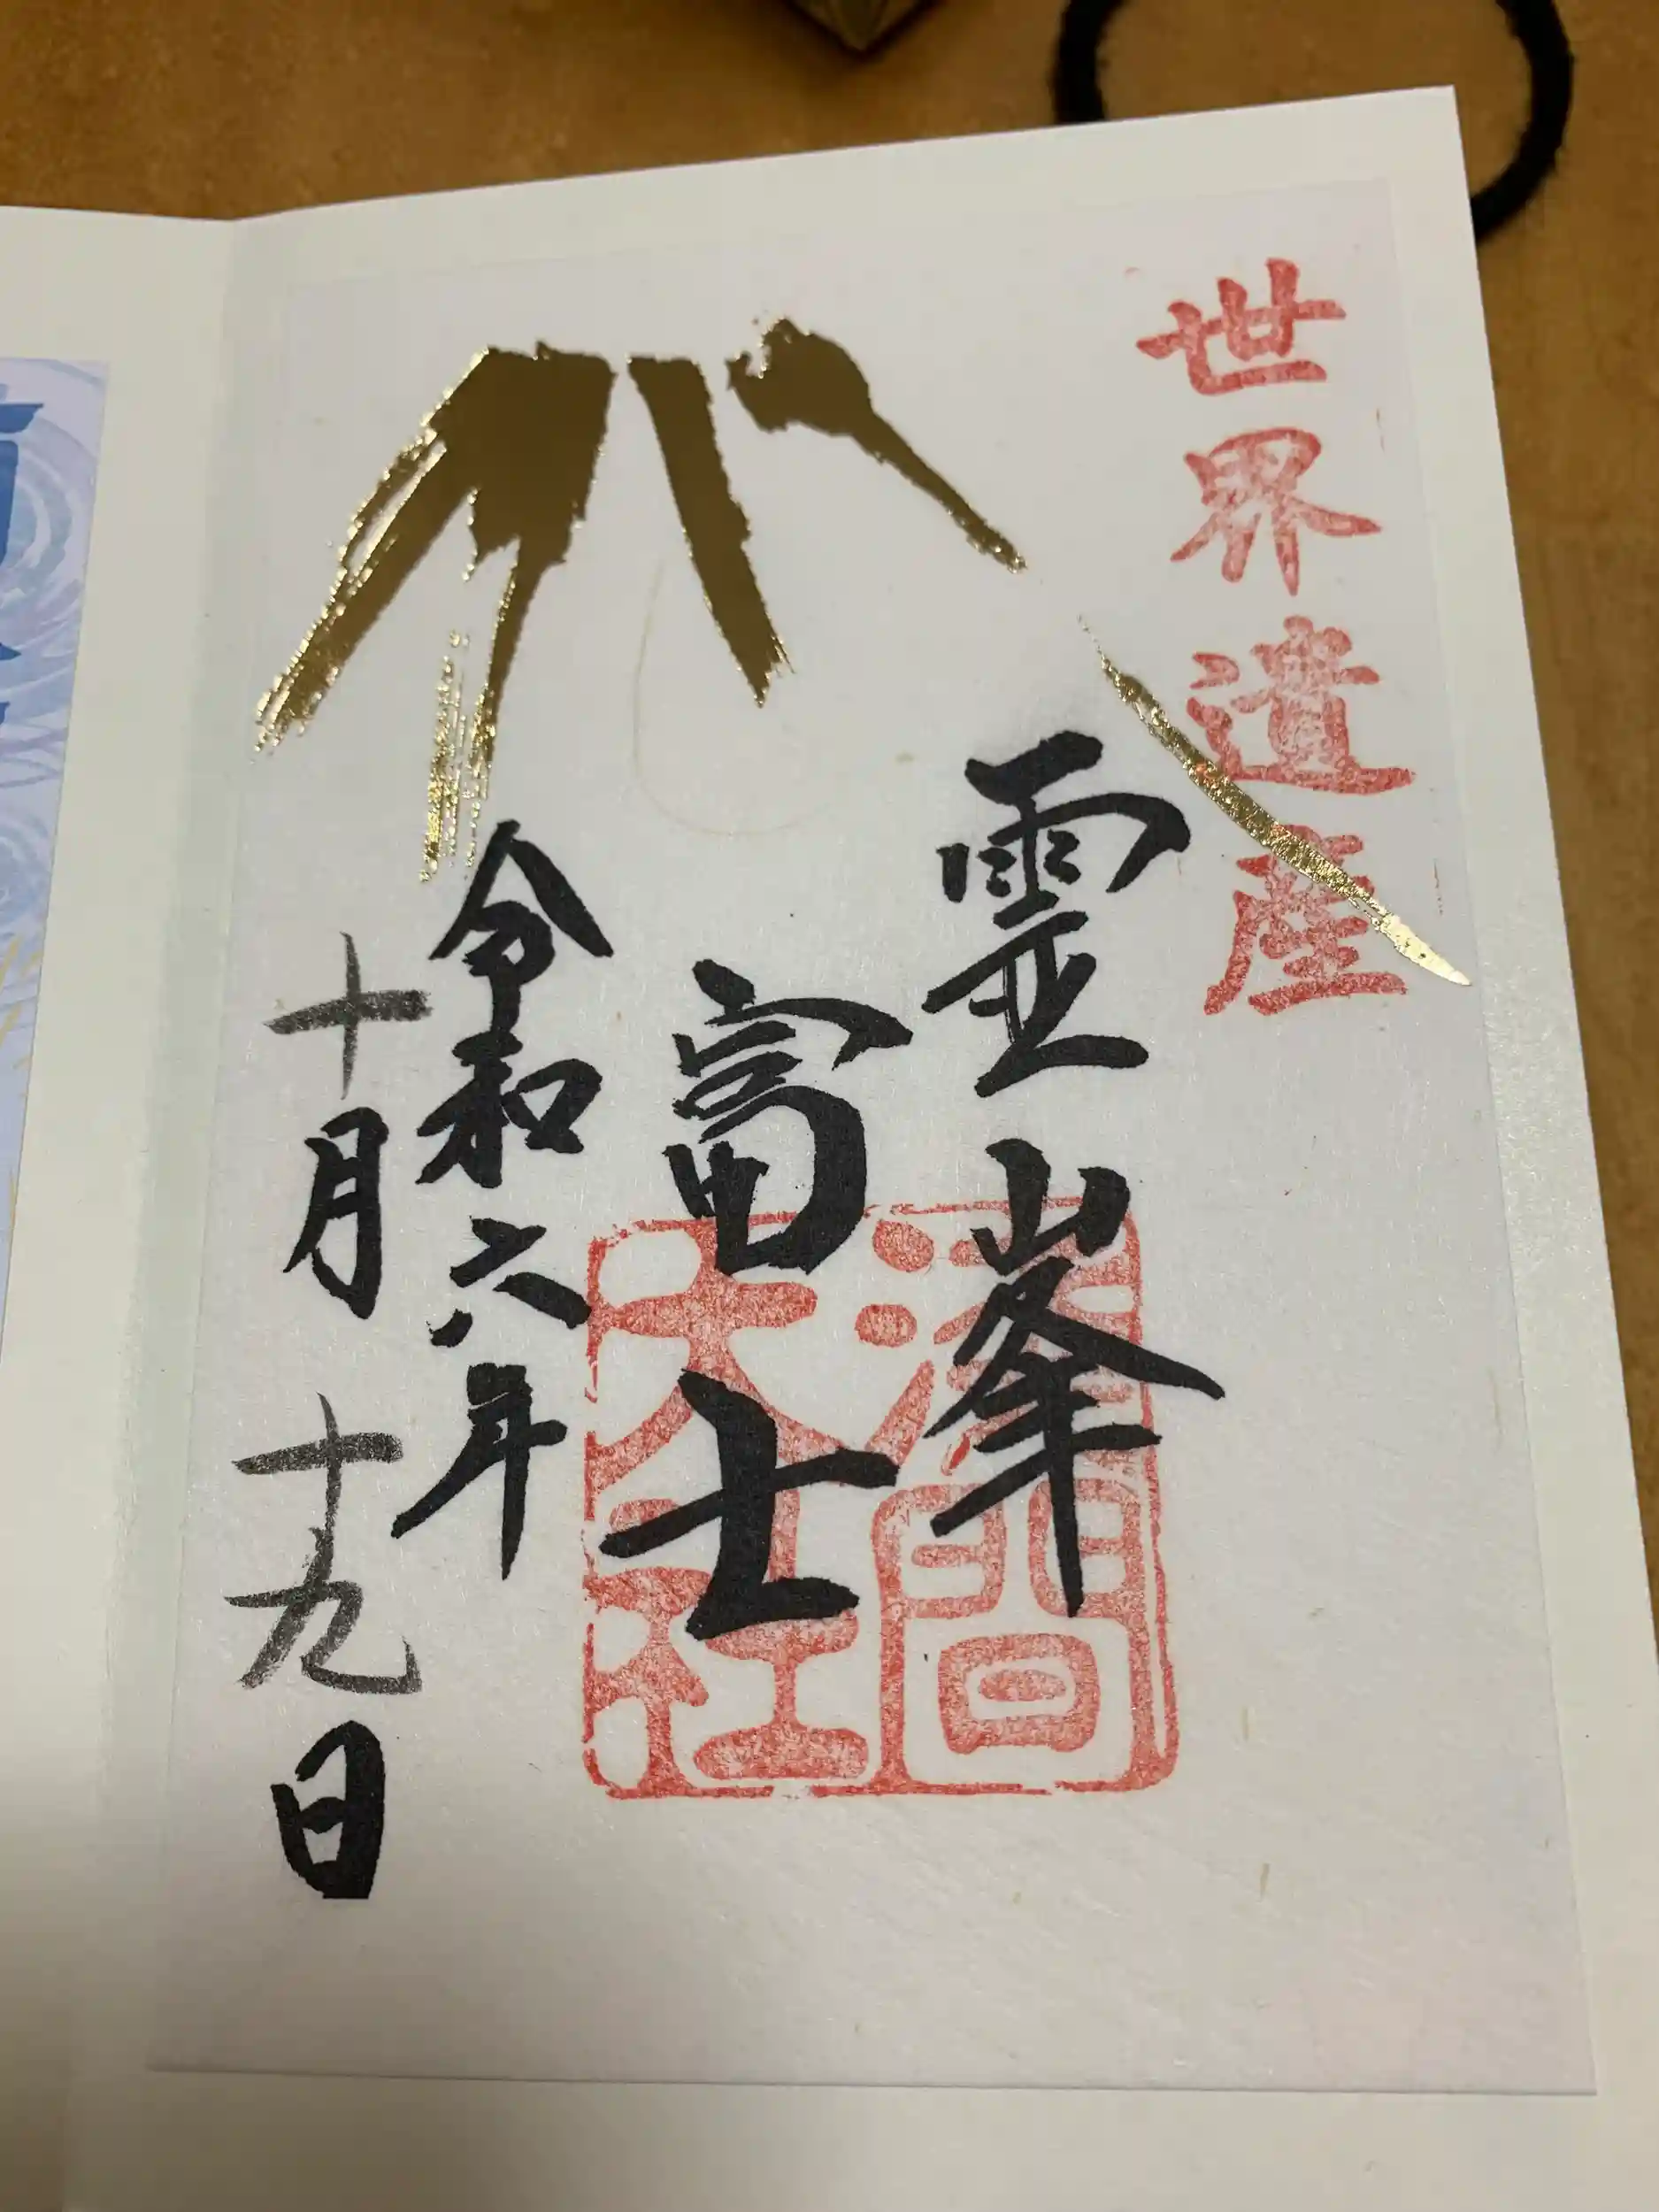 世界遺産
霊峯
富士
令和六年
十月十九日
淺間
大社